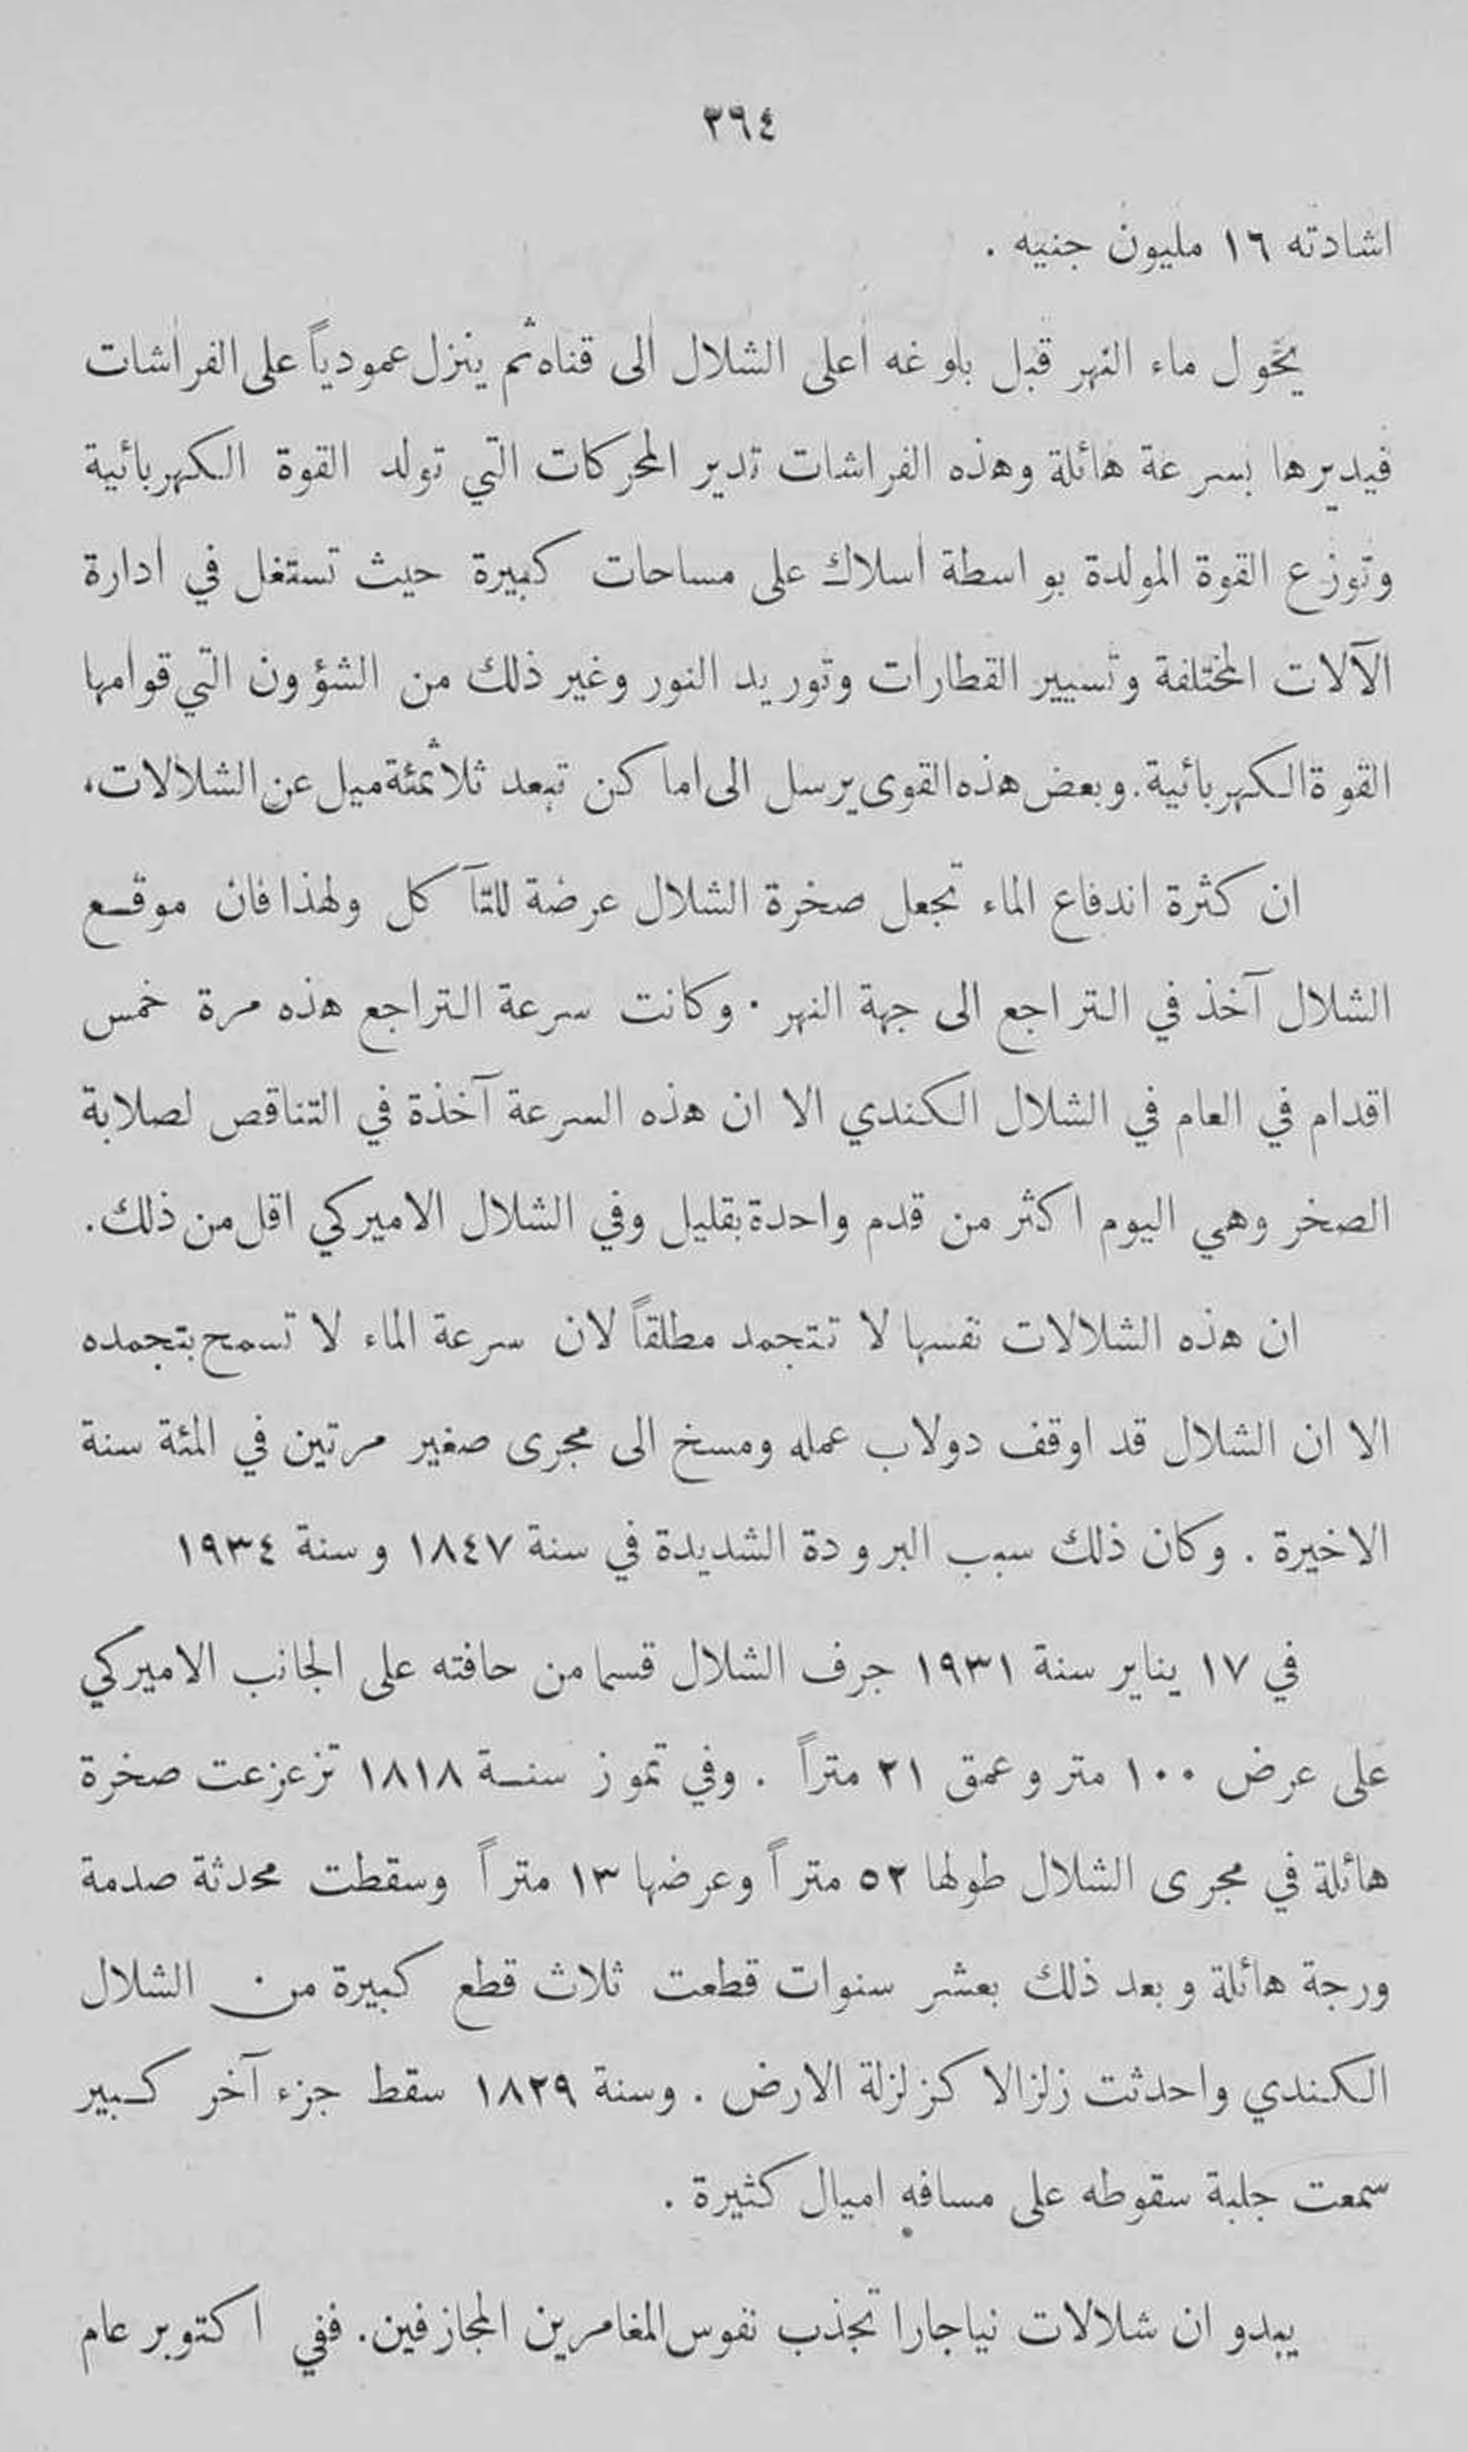 ٣٩٤
اشادته ١٦ مليون جنيه .
يحول ماء النهر قبل بلوغه أعلى الشلال ألى قناه ثم ينزل عمودياً على الفراشات
فيديرها بسرعة هائلة وهذه الفراشات تدير المحركات التي تولد القوة الكهربائية
وتوزع القوة المولدة بواسطة أسلاك على مساحات كبيرة حيث تستغل في ادارة
الآلات المختلفة وتسيير القطارات وتوريد النور وغير ذلك من الشؤون التي قوامها
القوة الكهربائية. وبعض هذه القوى يرسل الى اماكن تبعد ثلاثمئة ميل عن الشلالات،
ان كثرة اندفاع الماء تجعل صخرة الشلال عرضة للتآكل ولهذا فان موقع
الشلال آخذ في التراجع الى جهة النهر . وكانت سرعة التراجع هذه مرة خمس
اقدام في العام في الشلال الكندي الا ان هذه السرعة آخذة في التناقص لصلابة
الصخر وهي اليوم اكثر من قدم واحدة بقليل وفي الشلال الاميركي اقل من ذلك.
ان هذه الشلالات نفسها لا تتجمد مطلقاً لان سرعة الماء لا تسمح بتجمده
الا ان الشلال قد اوقف دولاب عمله ومسخ الى مجرى صغير مرتين في المئة سنة
الاخيرة . وكان ذلك سبب البرودة الشديدة في سنة ١٨٤٧ وسنة ١٩٣٤
في ١٧ يناير سنة ١٩٣١ جرف الشلال قسما من حافته على الجانب الاميركي
على عرض ١٠٠ متر وعمق ٢١ متراً . وفي تموز سنة ١٨١٨ تزعزعت صخرة
هائلة في مجرى الشلال طولها ٥٢ متراً وعرضها ١٣ متراً وسقطت محدثة صدمة
ورجة هائلة وبعد ذلك بعشر سنوات قطعت ثلاث قطع كبيرة من الشلال
الكندي واحدثت زلزالا كزلزلة الارض . وسنة ١٨٢٩ سقط جزء آخر كبير
سمعت جلبة سقوطه على مسافه اميال كثيرة .
يبدو ان شلالات نياجارا تجذب نفوس المغامرين المجازفين. ففي اكتوبر عام